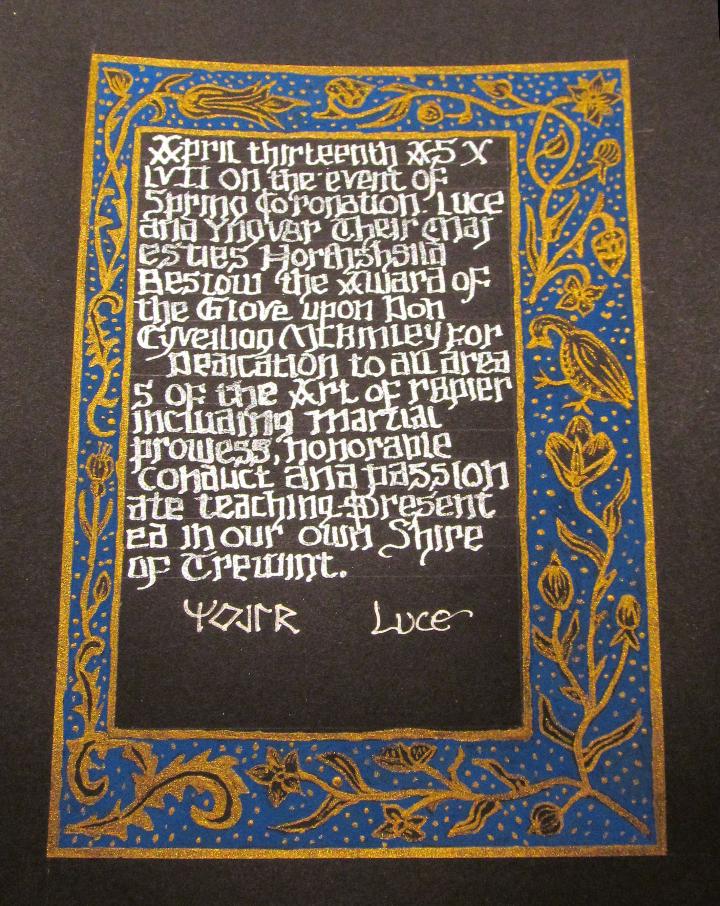 April thirteenth A S X
LVII on the event of
Spring Coronation, Luce
and Yngvar Their Maj
esties Northshield
Bestow the Award of
the Glove upon Don
Cyveiliog McKinley for
Dedication to all area
s of the Art of rapier
including martial
prowess, honorable
conduct and passion
ate teaching. Present
ed in our own Shire
of Trewint.
Luce